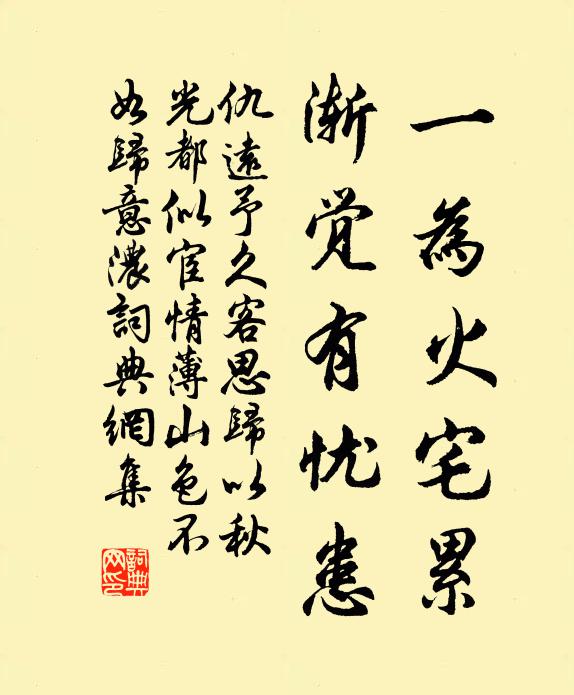 一為火宅累
渐觉有忧患
仇遠予久客思歸以秋
光都似宦情薄山色不
如歸意濃詞典網集
詞典
网印